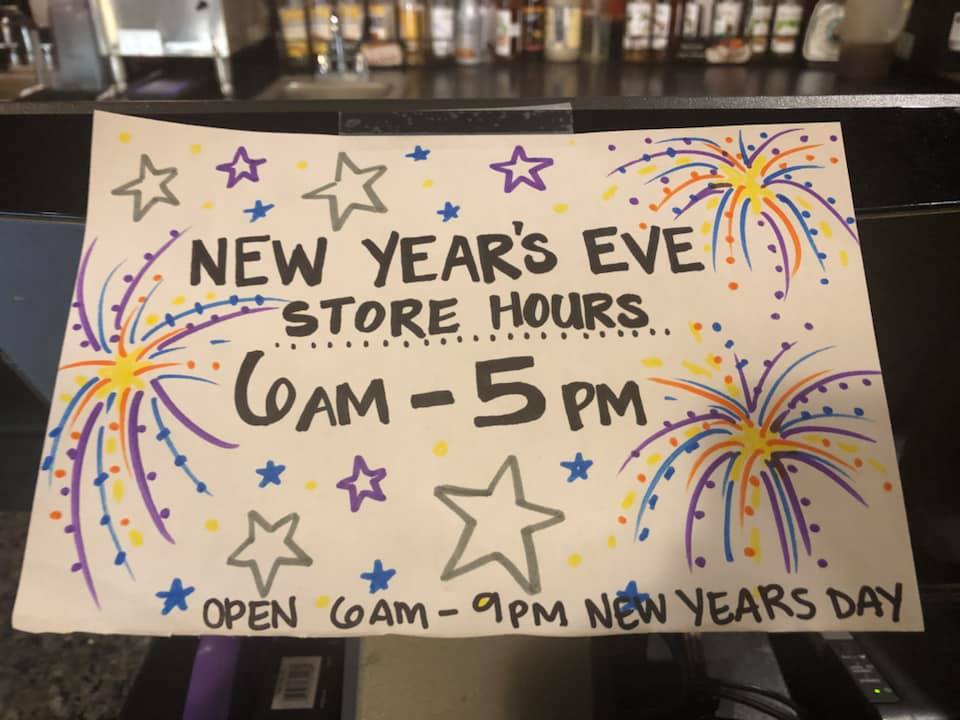 NEW YEAR'S EVE
STORE HOURS
6AM - 5PM
OPEN 6AM - 9PM NEW YEARS DAY